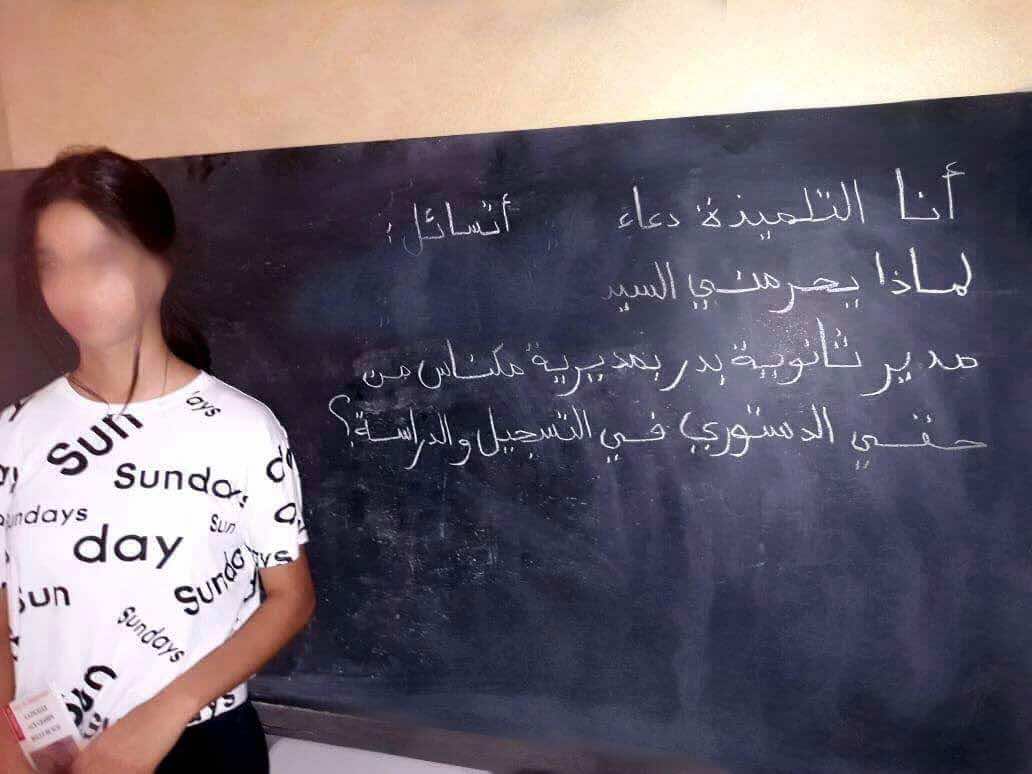 أنا التلميذة دعاء أتسائل:
لماذا يحرمني السيد
مدير ثانوية بدر بمديرية مكناس من
حقي الدستوري في التسجيل والدراسة؟
days
Sun
Sundays
day
Sundays
Sun
day
Sundays
Sun
Sundays
Sun